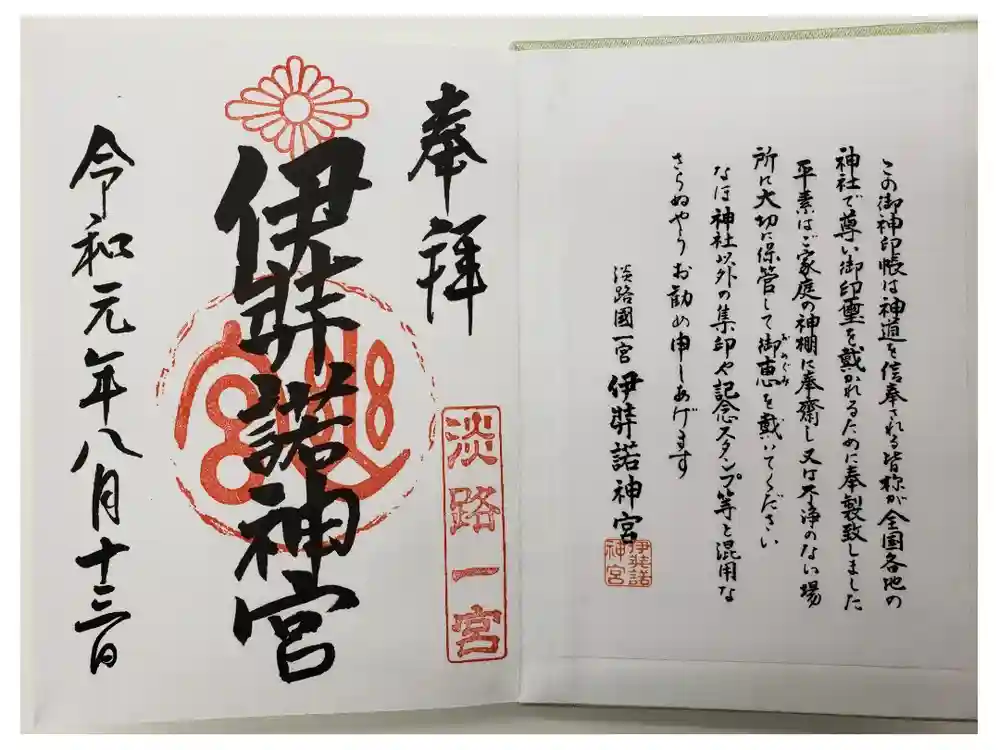 この御神印帳は神道を信奉される皆様が全国各地の
神社で尊い御印璽を戴かれるために奉製致しました
平素はご家庭の神棚に奉齋し又は不浄のない場
所に大切に保管して御恵を戴いてください
めぐみ
なほ神社以外の集印や記念スタンプ等と混用な
さらぬやうお勧め申しあげます
淡路國一宮 伊弉諾神宮
伊弉諾
神宮
奉拝
淡路一宮
伊弉諾神宮
令和元年八月十三日